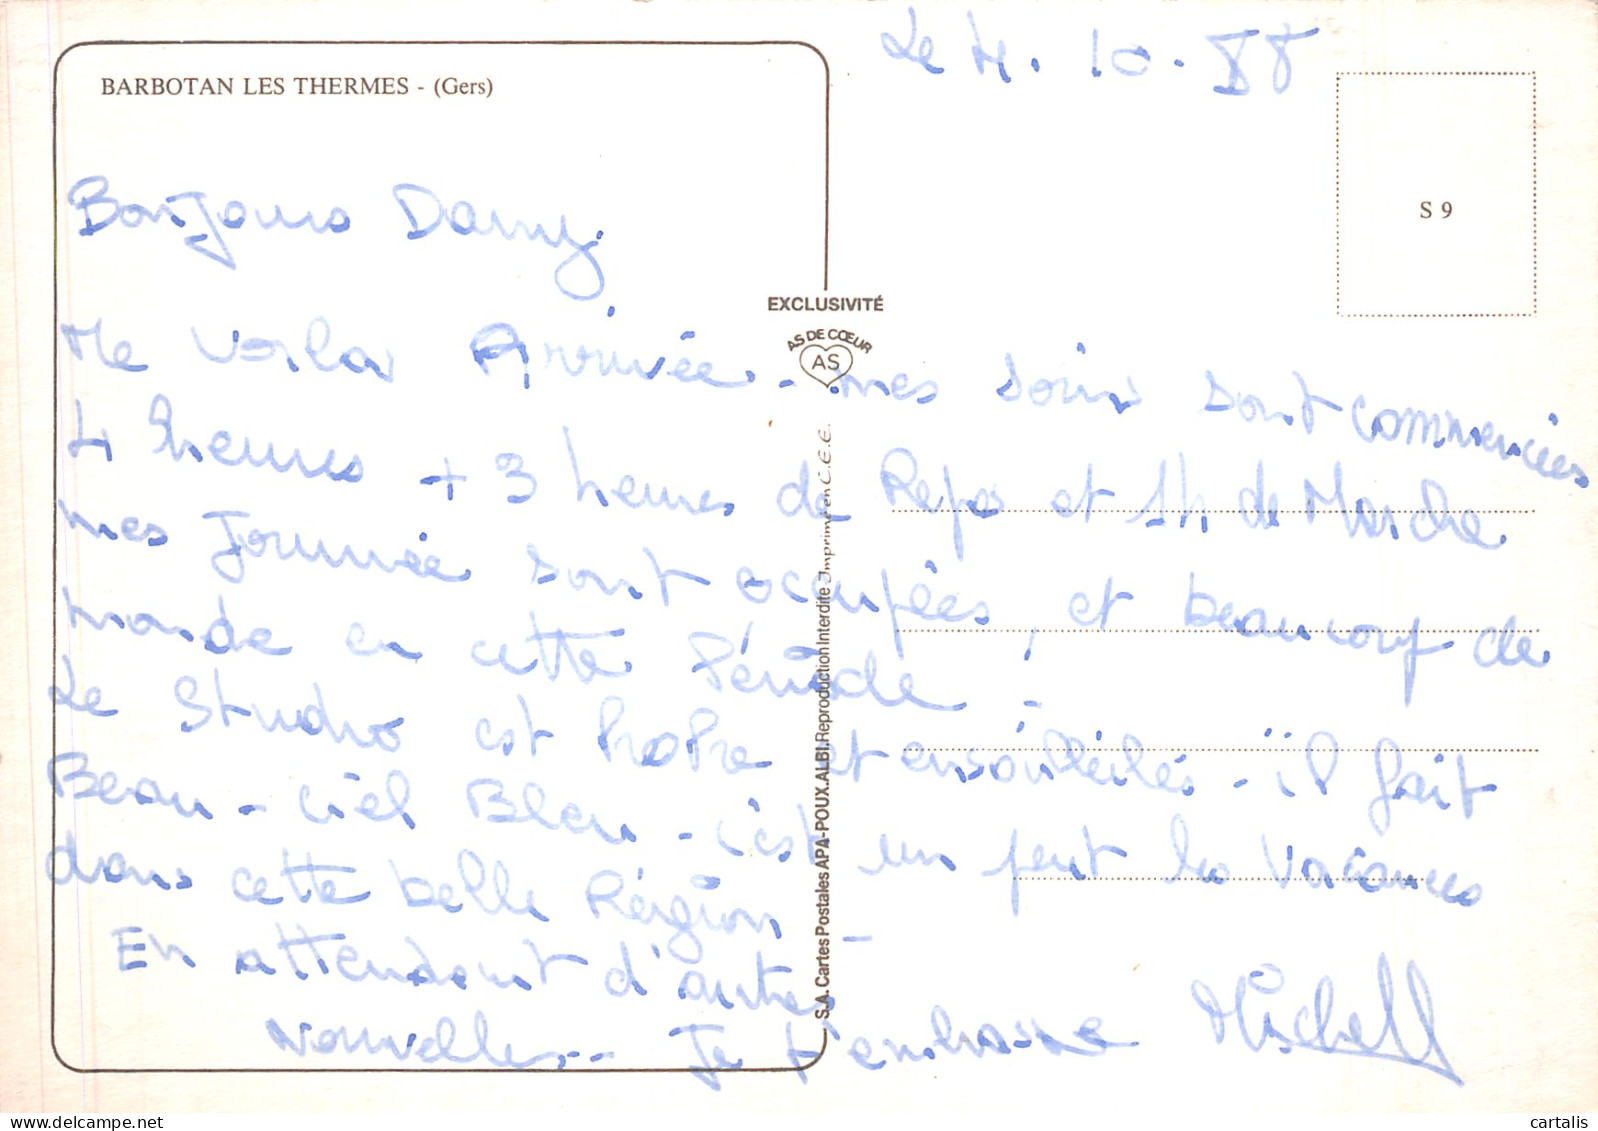 BARBOTAN LES THERMES - (Gers)
Le 4. 10. 88
S 9
Bonjour Dany
Me voila Arrivée - mes soins sont commencées
4 heures + 3 heures de Repos et 1h de Marche
mes Journée sont occupées, et beaucoup de
monde en cette Période -
Le Studio est Propre et ensoleillés - il fait
Beau - ciel Bleu - c'est un peut les Vacances
dans cette belle Région -
En attendant d'autres
Nouvelles -- Je t'embrasse Michell
EXCLUSIVITÉ
AS DE CŒUR
AS
S.A. Cartes Postales APA-POUX. ALBI Reproduction Interdite Imprimé en C.E.E.
cartalis